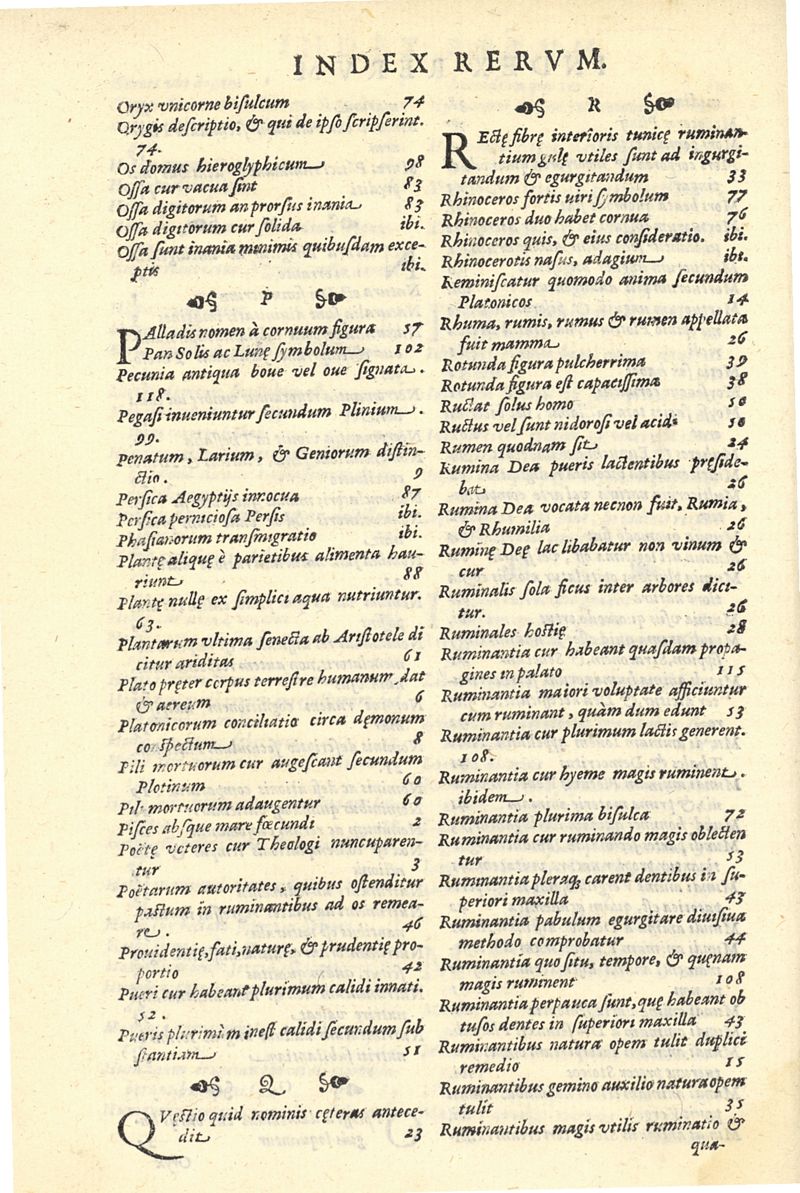 INDEX RERVM.
Oryx vnicorne bisulcum 74
Orygis descriptio, & qui de ipso scripserint.
74.
Os domus hieroglyphicum 98
Ossa cur vacua sint 83
Ossa digitorum an prorsus inania 83
Ossa digitorum cur solida ibi.
Ossa sunt inania minimis quibusdam exce-
ptis ibi.
P
PAlladis nomen à cornuum figura 57
Pan Solis ac Lunę symbolum 102
Pecunia antiqua boue vel oue signata.
118.
Pegasi inueniuntur secundum Plinium.
99.
Penatum, Larium, & Geniorum distin-
ctio. 9
Persica Aegyptijs innocua 87
Persica perniciosa Persis ibi.
Phasianorum transmigratio ibi.
Plantę aliquę è parietibus alimenta hau-
riunt 88
Plantę nullę ex simplici aqua nutriuntur.
63.
Plantarum vltima senecta ab Aristotele di
citur ariditas 61
Plato pręter corpus terrestre humanum dat
& aereum 6
Platonicorum conciliatio circa dęmonum
conspectum 8
Pili mortuorum cur augescant secundum
Plotinum 60
Pili mortuorum adaugentur 60
Pisces absque mare fœcundi 2
Poëtę veteres cur Theologi nuncuparen-
tur 3
Poëtarum autoritates, quibus ostenditur
pastum in ruminantibus ad os remea-
re. 46
Prouidentię, fati, naturę, & prudentię pro-
portio 42
Pueri cur habeant plurimum calidi innati.
52.
Pueris plurimùm inest calidi secundum sub
stantiam 51
Q
QVęstio quid nominis cęteras antece-
dit 23
R
REctę fibrę interioris tunicę ruminan-
tium gulę vtiles sunt ad ingurgi-
tandum & egurgitandum 33
Rhinoceros fortis uiri symbolum 77
Rhinoceros duo habet cornua 76
Rhinoceros quis, & eius consideratio. ibi.
Rhinocerotis nasus, adagium ibi.
Reminiscatur quomodo anima secundum
Platonicos 14
Rhuma, rumis, rumus & rumen appellata
fuit mamma 26
Rotunda figura pulcherrima 39
Rotunda figura est capacissima 38
Ructat solus homo 50
Ructus vel sunt nidorosi vel acidi 50
Rumen quodnam sit 24
Rumina Dea pueris lactentibus pręside-
bat 26
Rumina Dea vocata necnon fuit, Rumia,
& Rhumilia 26
Ruminę Deę lac libabatur non vinum &
cur 26
Ruminalis sola ficus inter arbores dici-
tur. 26
Ruminales hostię 28
Ruminantia cur habeant quasdam propa-
gines in palato 115
Ruminantia maiori voluptate afficiuntur
cum ruminant, quàm dum edunt 53
Ruminantia cur plurimum lactis generent.
108.
Ruminantia cur hyeme magis ruminent.
ibidem.
Ruminantia plurima bisulca 72
Ruminantia cur ruminando magis oblecten
tur 53
Ruminantia pleraq; carent dentibus in su-
periori maxilla 43
Ruminantia pabulum egurgitare diuisiua
methodo comprobatur 44
Ruminantia quo situ, tempore, & quęnam
magis ruminent 108
Ruminantia perpauca sunt, quę habeant ob
tusos dentes in superiori maxilla 43
Ruminantibus natura opem tulit duplici
remedio 15
Ruminantibus gemino auxilio natura opem
tulit 35
Ruminantibus magis vtilis ruminatio &
qua-